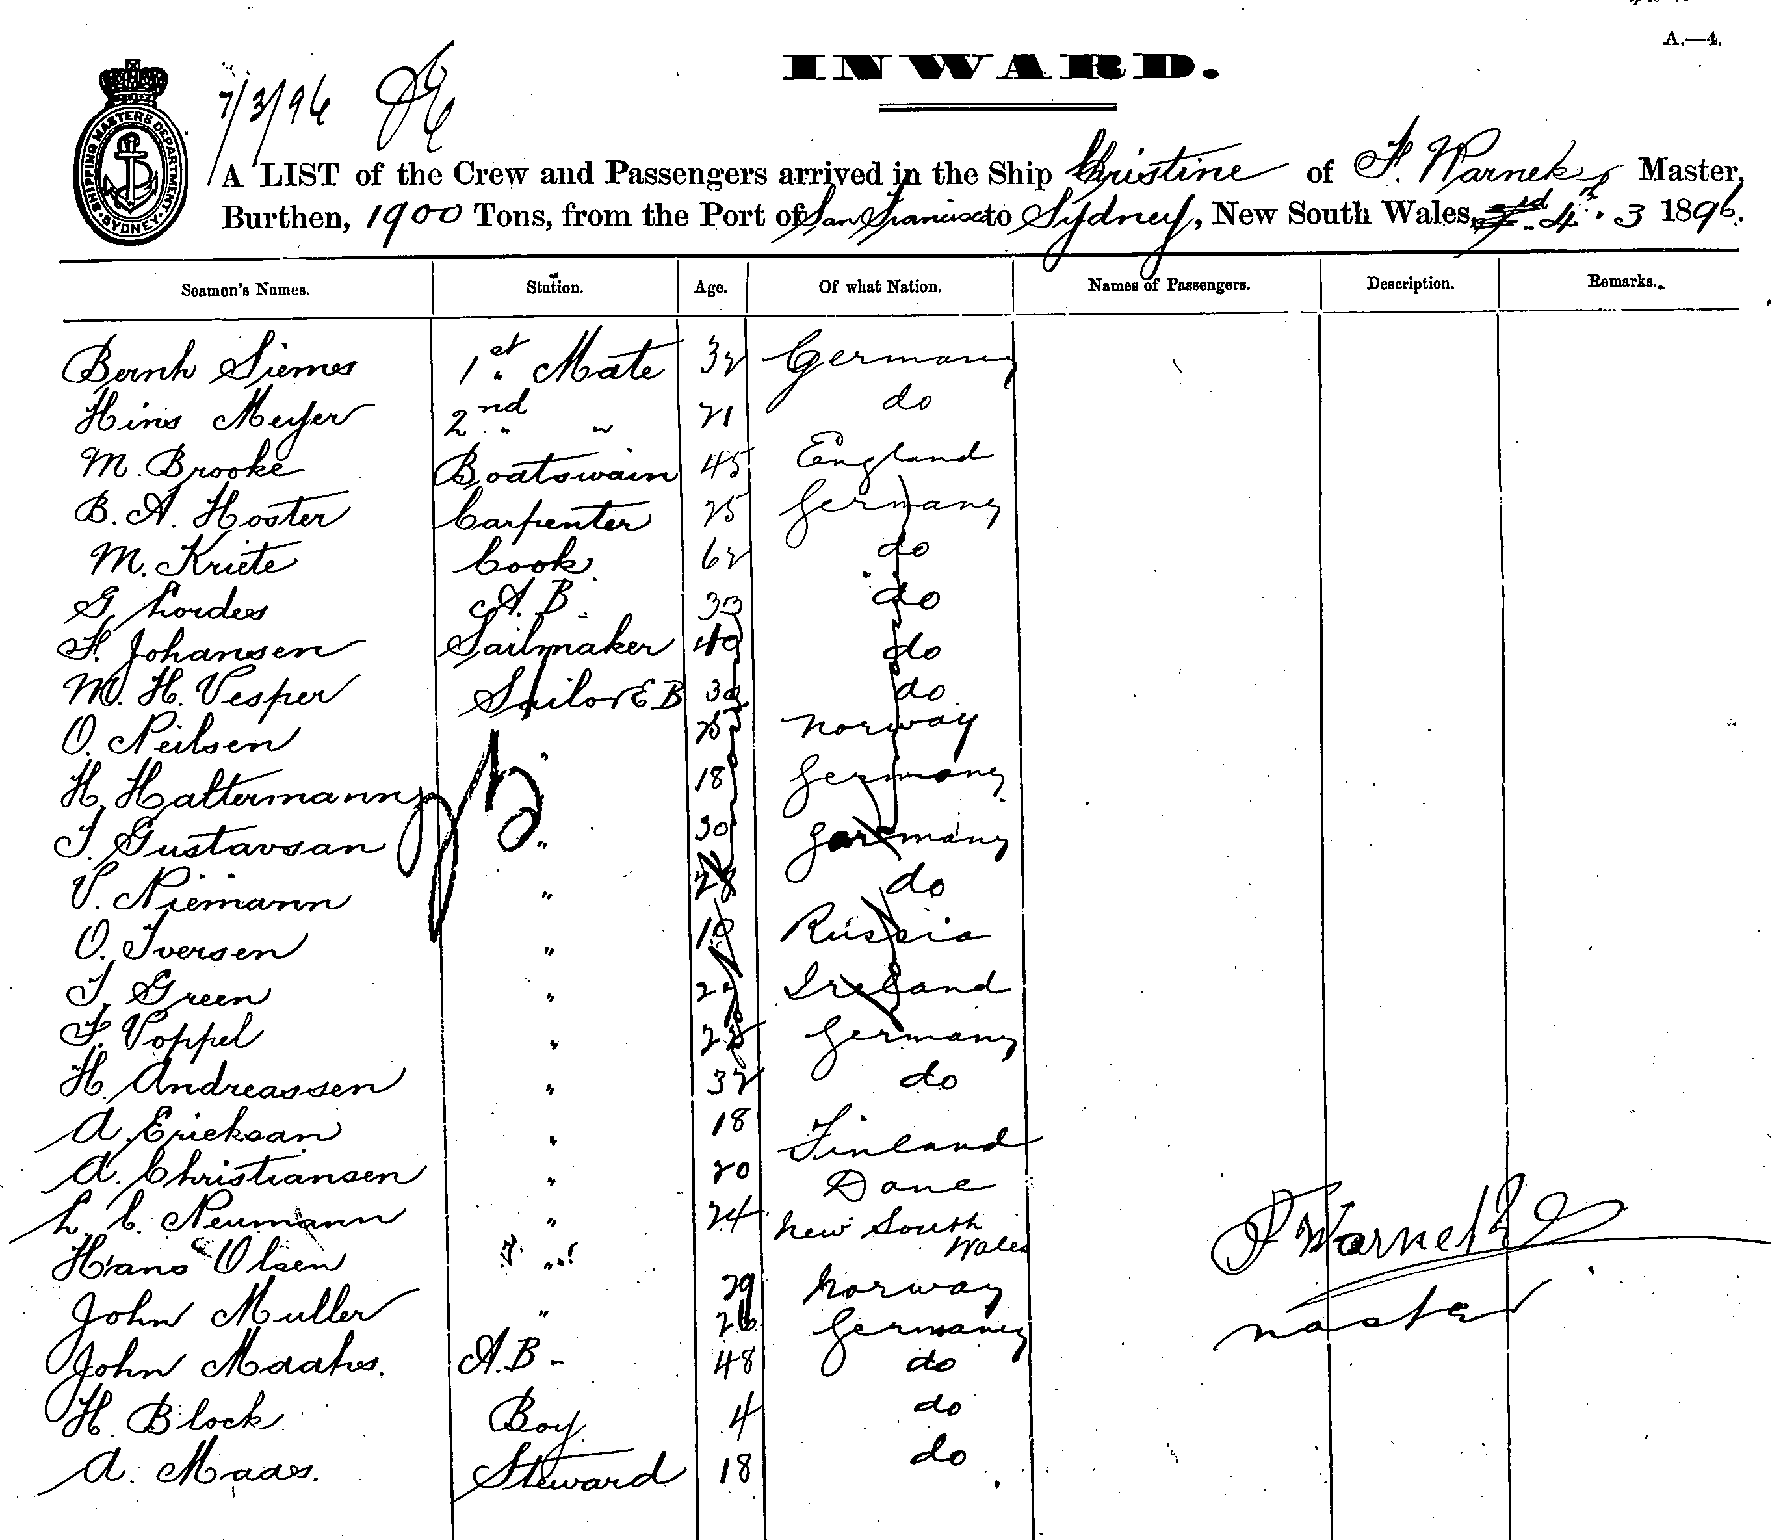 A.—4.
INWARD.
7/3/96
SHIPPING MASTERS DEPARTMENT SYDNEY
A LIST of the Crew and Passengers arrived in the Ship Christine of F. Warneke Master,
Burthen, 1900 Tons, from the Port of San Francisco to Sydney, New South Wales, 4th. 3 1896.
Seamen's Names. Station. Age. Of what Nation. Names of Passengers. Description. Remarks.
Bernh Siemes 1st Mate 32 Germany
Hins Meyer 2nd " 21 do
M. Brooke Boatswain 45 England
B. A. Hoster Carpenter 25 Germany
M. Kriete Cook 62 do
G. Cordes A.B. 33 do
F. Johansen Sailmaker 40 do
M. H. Vesper Sailor do
O. Neilsen " 25 Norway
H. Haltermann 18 Germany
J. Gustavsan " 30 Germany
V. Niemann " 28 do
O. Iversen " Russia
J. Green " Ireland
F. Voppel " Germany
H. Andreassen " 32 do
A. Ericksan " 18 Finland
A. Christiansen " 20 Dane
L. C. Neumann " 24 New South Wales
Hans Olsen " 29 Norway
John Muller " 26 Germany
John Maahs. A.B - 48 do
H. Block Boy. 4 do
A. Maas. Steward 18 do
F Warneke
master